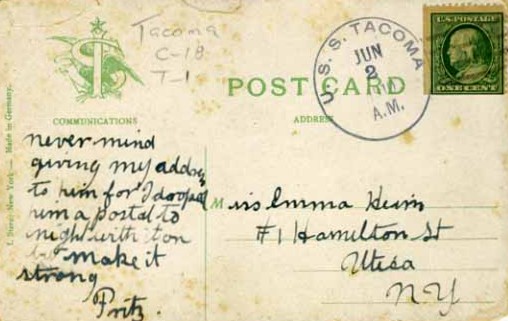 Tacoma
C-18
T-1
U.S. POSTAGE
ONE CENT
U. S. S. TACOMA
JUN
2
A.M.
POST CARD
COMMUNICATIONS
ADDRESS
I. Stern, New York — Made in Germany.
never mind
giving my address
to him for I dropped
him a postal to
night with it on
make it
strong
Fritz.
Miss Emma Heim
#1 Hamilton St
Utica
N.Y.